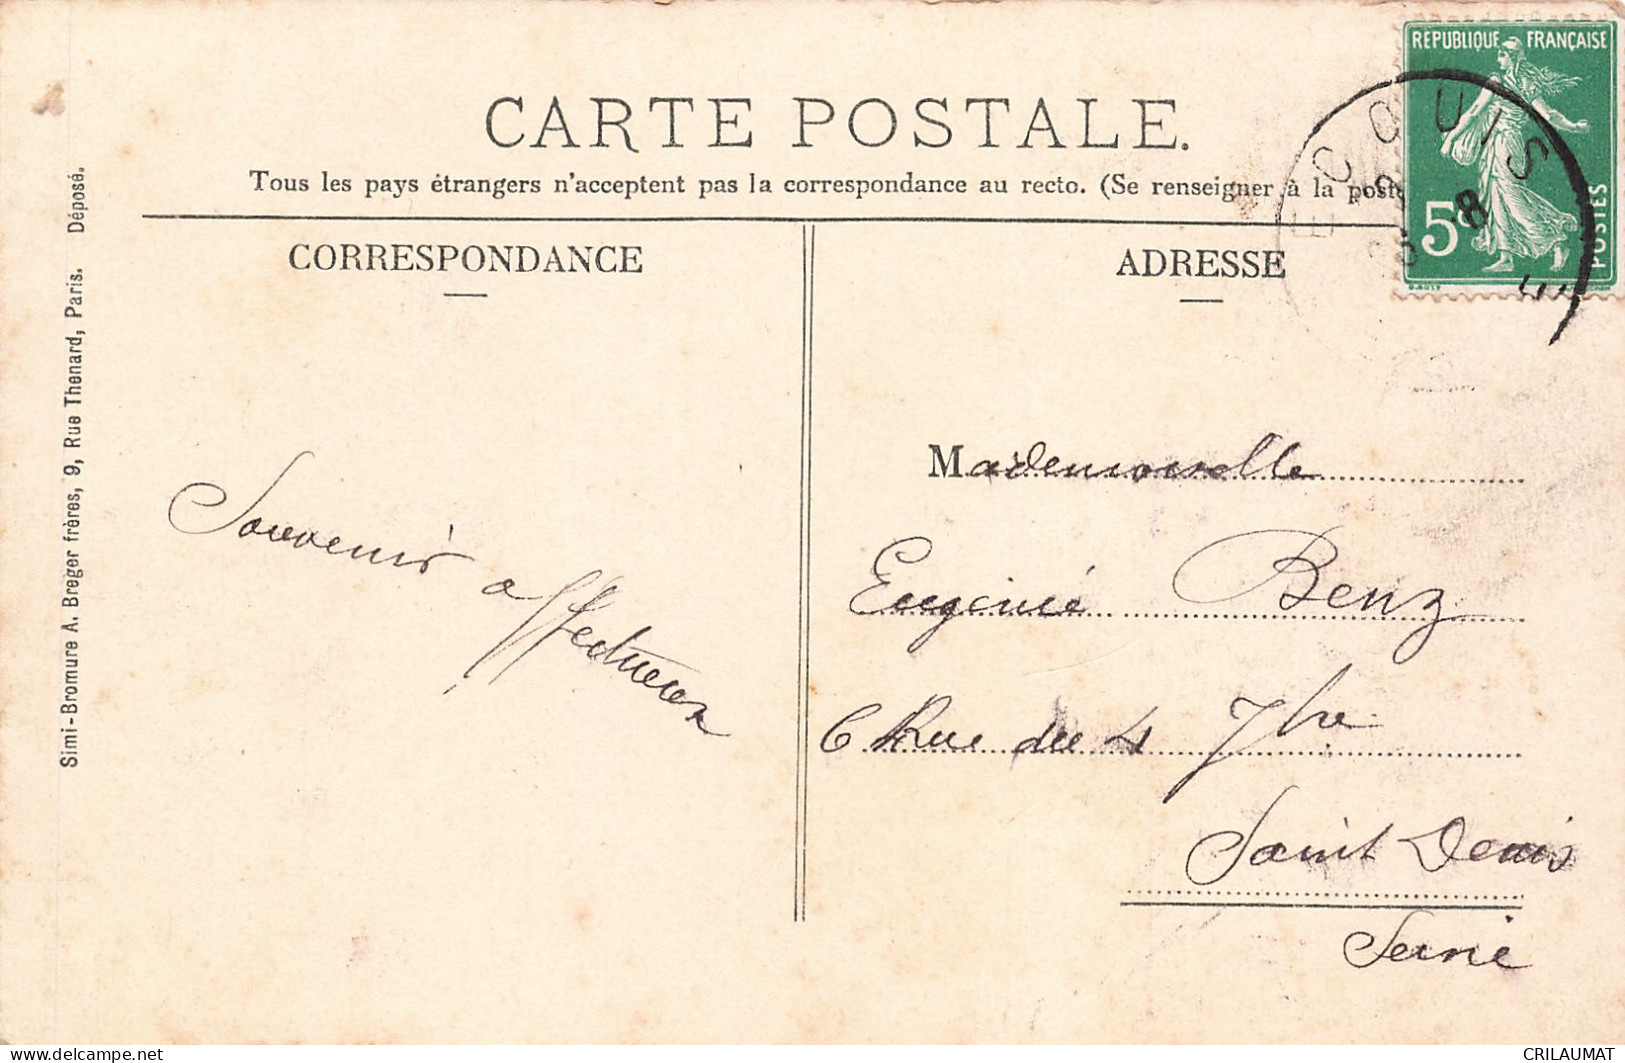 CARTE POSTALE.
Tous les pays étrangers n'acceptent pas la correspondance au recto. (Se renseigner à la poste
CORRESPONDANCE
ADRESSE
REPUBLIQUE FRANÇAISE
5c
POSTES
ECOUIS
8
Simi-Bromure A. Breger frères, 9, Rue Thenard, Paris. Déposé.
Souvenir affectueux
Mademoiselle
Eugénie Benz
6 Rue du 4 7bre
Saint Denis
Seine
www.delcampe.net
CRILAUMAT